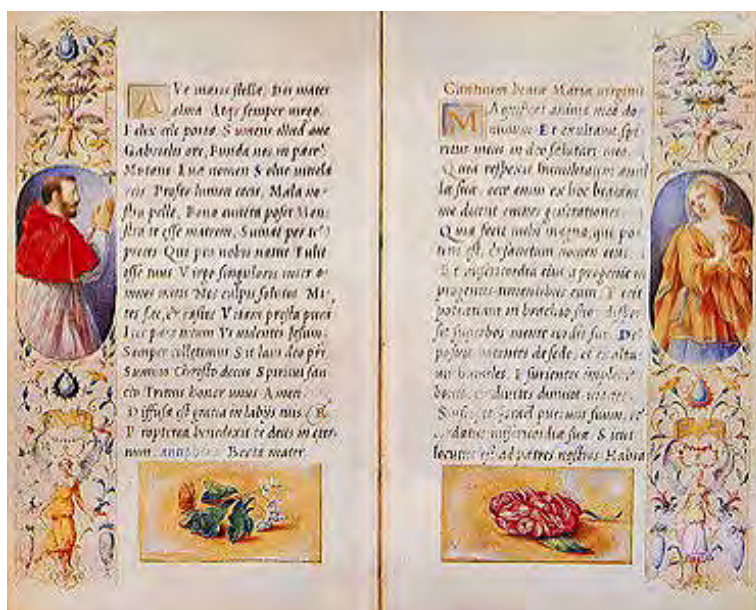 AVe maris stella, Dei mater
alma Atqȝ semper uirgo.
Felix celi porta. Sumens illud aue
Gabrielis ore, Funda nos in pace
Mutans Euæ nomen Solue uincla
reis Profer lumen cecis, Mala no-
stra pelle, Bona cuncta posce Mon-
stra te esse matrem, Sumat per te
preces Qui pro nobis natus Tulit
esse tuus Virgo singularis inter o-
mnes mitis Nos culpis solutos Mi-
tes fac, & castos Vitam presta puram
Iter para tutum Vt uidentes Jesum
Semper colletemur Sit laus deo pri
Summo Christo decus Spiritui san
cto Trinus honor unus Amen.
Diffusa est gratia in labijs tuis. R
Propterea benedixit te deus in eter-
num. Beata mater
Canticum beate Marie uirginis
MAgnificat anima mea do-
minum Et exultauit spi-
ritus meus in deo salutari meo.
Quia respexit humilitatem ancil
læ suæ, ecce enim ex hoc beatam
me dicent omnes generationes
Quia fecit mihi magna, qui po-
tens est, & sanctum nomen eius.
Et misericordia eius a progenie in
progenies timentibus eum Fecit
potentiam in brachio suo disper
sit superbos mente cordis sui De
posuit potentes de sede, et exalta-
uit humiles. Esurientes impleuit
bonis, et diuites dimisit
Suscepit Israel puerum suum,
misericordiæ suæ Sicut
locutus est ad patres nostros Habra